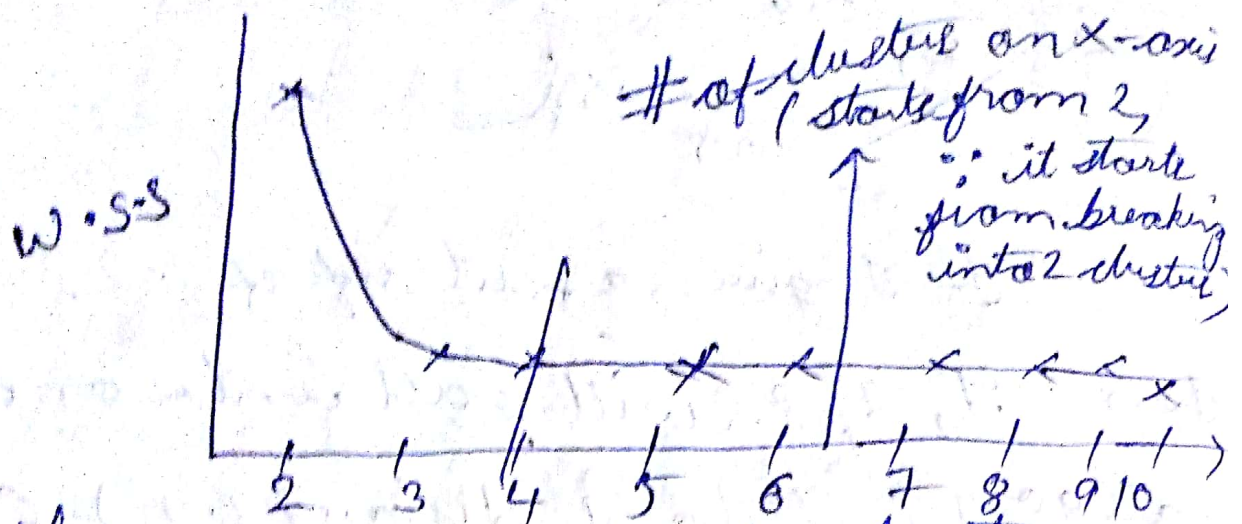 # of cluster on X-axis
( starts from 2,
∵ it starts
from breaking
into 2 cluster)
W.S.S
2 3 4 5 6 7 8 9 10